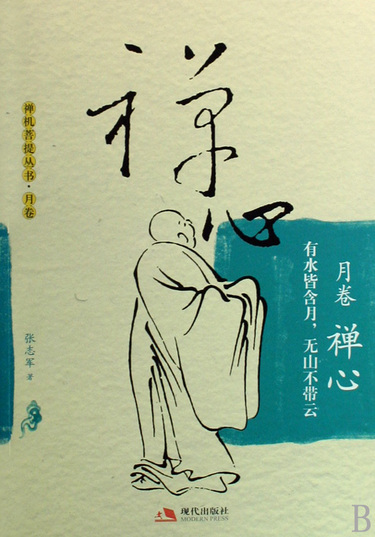 禅心
禅机菩提丛书·月卷
月卷 禅心
有水皆含月，无山不带云
张志军 著
现代出版社
MODERN PRESS
B